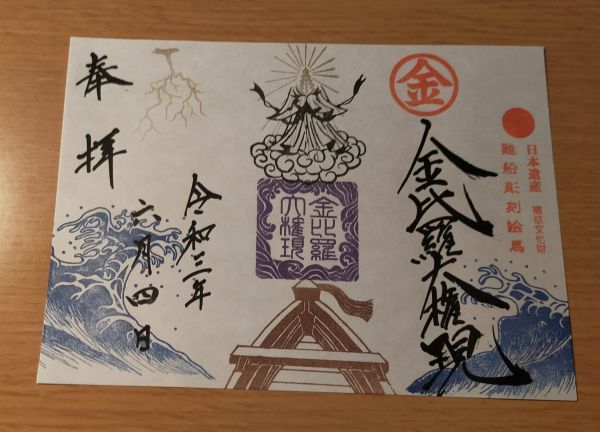 金
日本遺産 構成文化財
難船彫刻絵馬
金比羅大権現
金比羅
大権現
奉拝
令和三年
六月四日